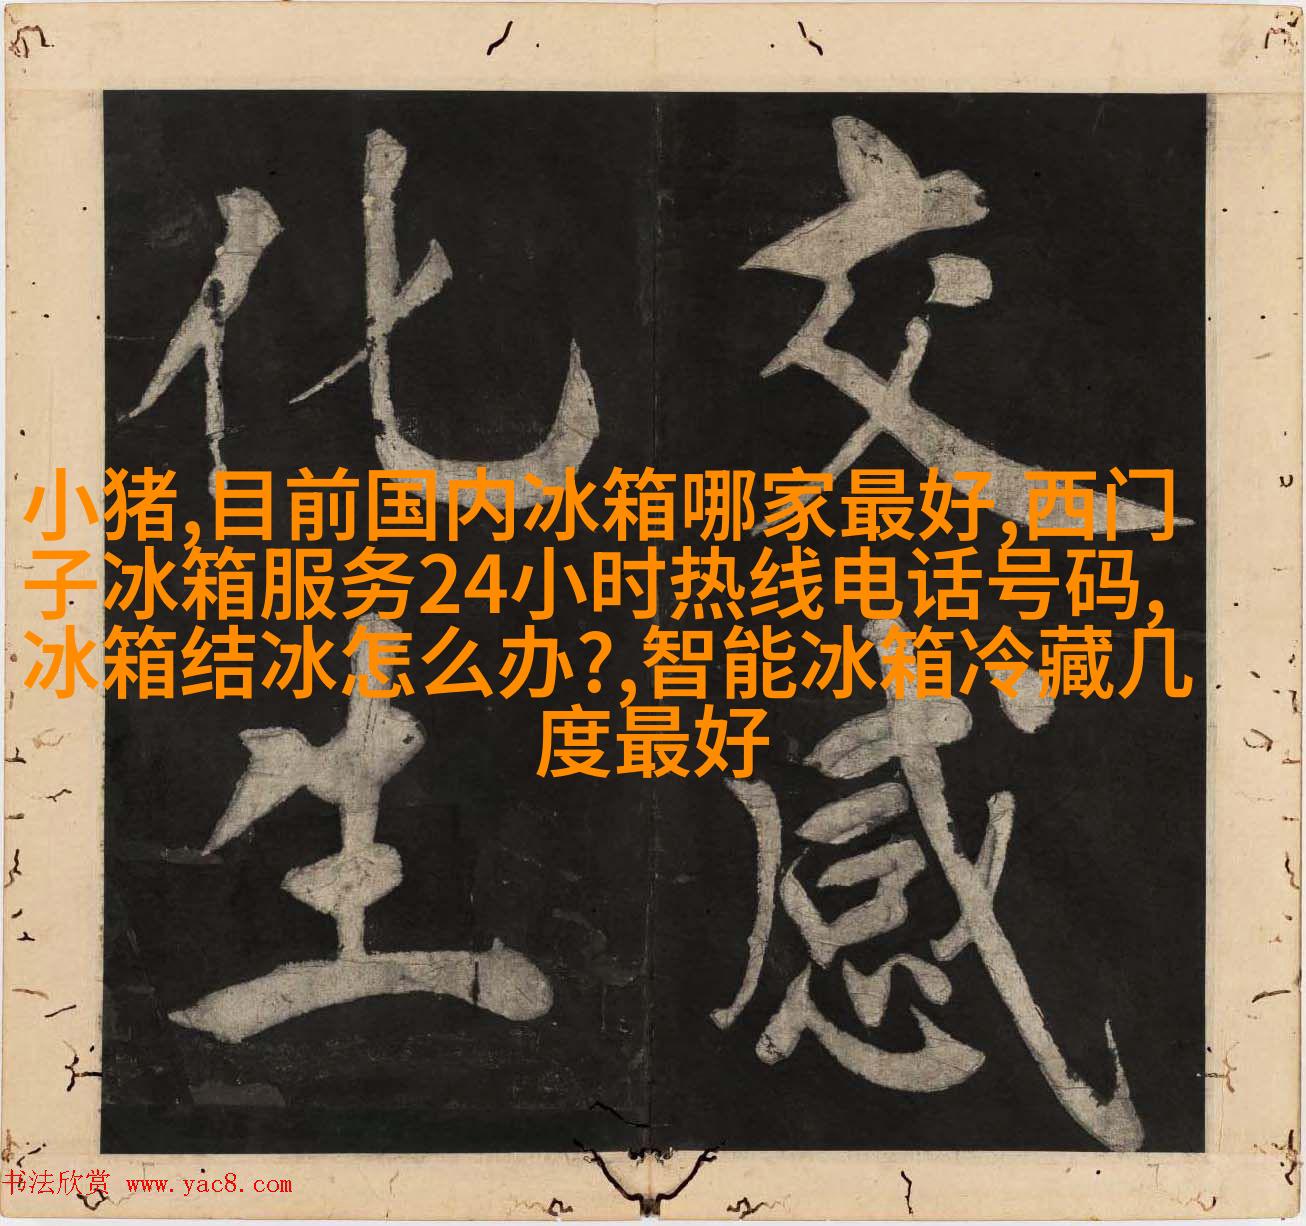 交感
化生
小猪,目前国内冰箱哪家最好,西门
子冰箱服务24小时热线电话号码,
冰箱结冰怎么办?,智能冰箱冷藏几
度最好
书法欣赏 www.yac8.com